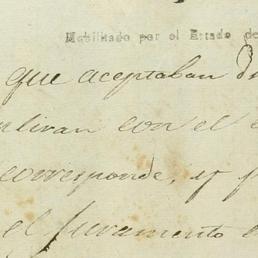 Habilitado por el Estado de
que aceptaban
con el
corresponde, y
el juramento